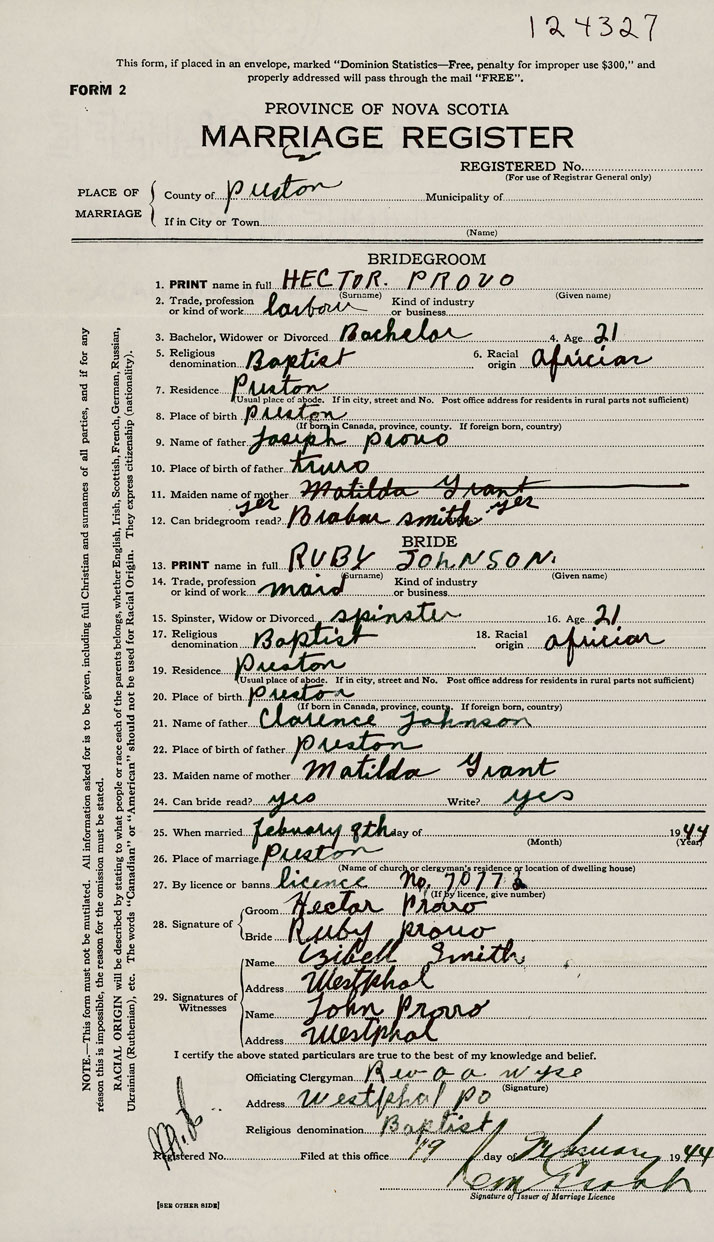 124327
This form, if placed in an envelope, marked "Dominion Statistics—Free, penalty for improper use $300," and
properly addressed will pass through the mail "FREE".
FORM 2
PROVINCE OF NOVA SCOTIA
MARRIAGE REGISTER
REGISTERED No.
(For use of Registrar General only)
PLACE OF MARRIAGE
County of Preston Municipality of
If in City or Town
(Name)
BRIDEGROOM
1. PRINT name in full HECTOR. PROVO
(Surname) (Given name)
2. Trade, profession or kind of work labour Kind of industry or business
3. Bachelor, Widower or Divorced Bachelor 4. Age 21
5. Religious denomination Baptist 6. Racial origin africian
7. Residence Preston
(Usual place of abode. If in city, street and No. Post office address for residents in rural parts not sufficient)
8. Place of birth preston
(If born in Canada, province, county. If foreign born, country)
9. Name of father Joseph provo
10. Place of birth of father truro
11. Maiden name of mother Matilda Grant
12. Can bridegroom read? yes smith yes
BRIDE
13. PRINT name in full RUBY JOHNSON.
(Surname) (Given name)
14. Trade, profession or kind of work maid Kind of industry or business
15. Spinster, Widow or Divorced spinster 16. Age 21
17. Religious denomination Baptist 18. Racial origin africian
19. Residence Preston
(Usual place of abode. If in city, street and No. Post office address for residents in rural parts not sufficient)
20. Place of birth preston
(If born in Canada, province, county. If foreign born, country)
21. Name of father Clarence Johnson
22. Place of birth of father preston
23. Maiden name of mother Matilda Grant
24. Can bride read? yes Write? yes
25. When married february 8th day of 1944
(Month) (Year)
26. Place of marriage Preston
(Name of church or clergyman's residence or location of dwelling house)
27. By licence or banns licence No. 7077
(If by licence, give number)
28. Signature of
Groom Hector Provo
Bride Ruby provo
29. Signatures of Witnesses
Name Smith
Address Westphal
Name John Provo
Address Westphal
I certify the above stated particulars are true to the best of my knowledge and belief.
Officiating Clergyman Rev a a wyse
(Signature)
Address Westphal PO
Religious denomination Baptist
Registered No. Filed at this office 19 day of February 1944
Signature of Issuer of Marriage Licence
[SEE OTHER SIDE]
NOTE.—This form must not be mutilated. All information asked for is to be given, including full Christian and surnames of all parties, and if for any
reason this is impossible, the reason for the omission must be stated.
RACIAL ORIGIN will be described by stating to what people or race each of the parents belongs, whether English, Irish, Scottish, French, German, Russian,
Ukrainian (Ruthenian), etc. The words "Canadian" or "American" should not be used for Racial Origin. They express citizenship (nationality).